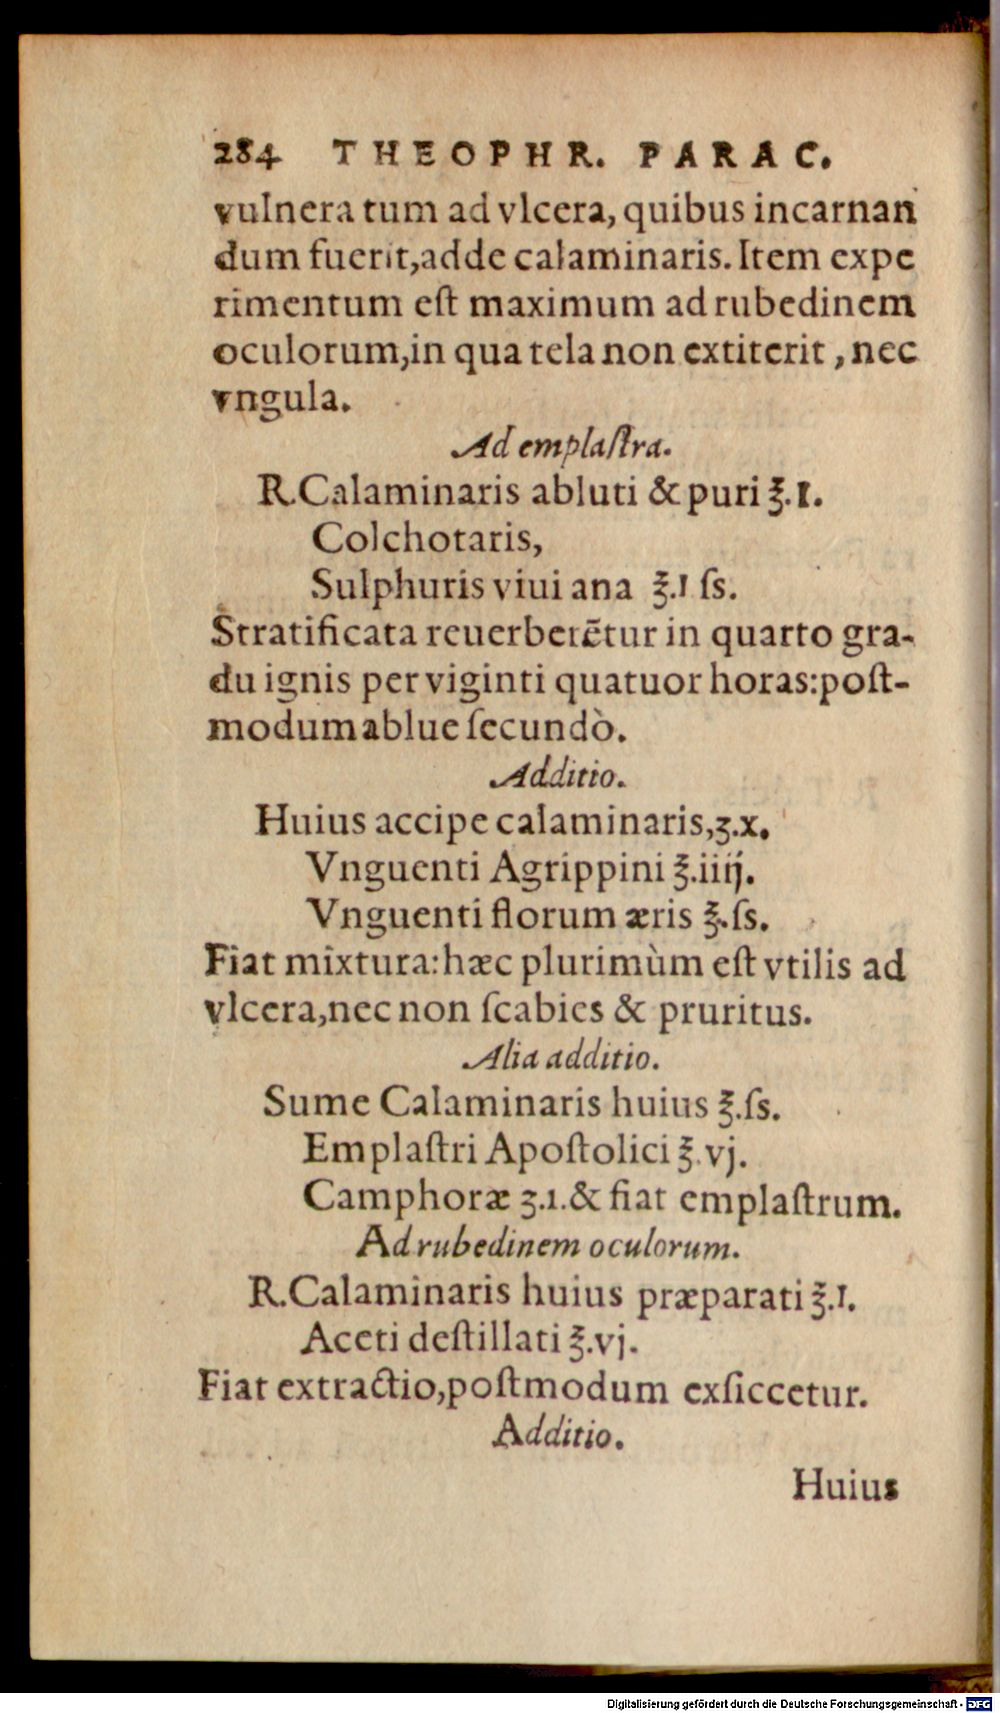 284 THEOPHR. PARAC.
vulnera tum ad vlcera, quibus incarnan
dum fuerit,adde calaminaris. Item expe
rimentum eſt maximum ad rubedinem
oculorum,in qua tela non extiterit , nec
vngula.
Ad emplaſtra.
R.Calaminaris abluti & puri ℥.I.
Colchotaris,
Sulphuris viui ana ℥.I ſs.
Stratificata reuerberẽtur in quarto gra-
du ignis per viginti quatuor horas:poſt-
modum ablue ſecundò.
Additio.
Huius accipe calaminaris,ʒ.x.
Vnguenti Agrippini ℥.iiij.
Vnguenti florum æris ℥.ſs.
Fiat mixtura:hæc plurimùm eſt vtilis ad
vlcera,nec non ſcabies & pruritus.
Alia additio.
Sume Calaminaris huius ℥.ſs.
Emplaſtri Apoſtolici ℥.vj.
Camphoræ ʒ.1.& fiat emplaſtrum.
Ad rubedinem oculorum.
R.Calaminaris huius præparati ℥.I.
Aceti deſtillati ℥.vj.
Fiat extractio,poſtmodum exſiccetur.
Additio.
Huius
Digitalisierung gefördert durch die Deutsche Forschungsgemeinschaft - DFG